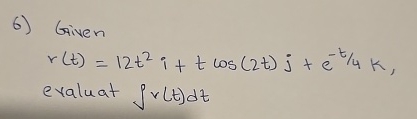 6) Given
r(t) = 12t² i + t cos(2t) j + e^-t/4 k,
evaluat ∫r(t)dt